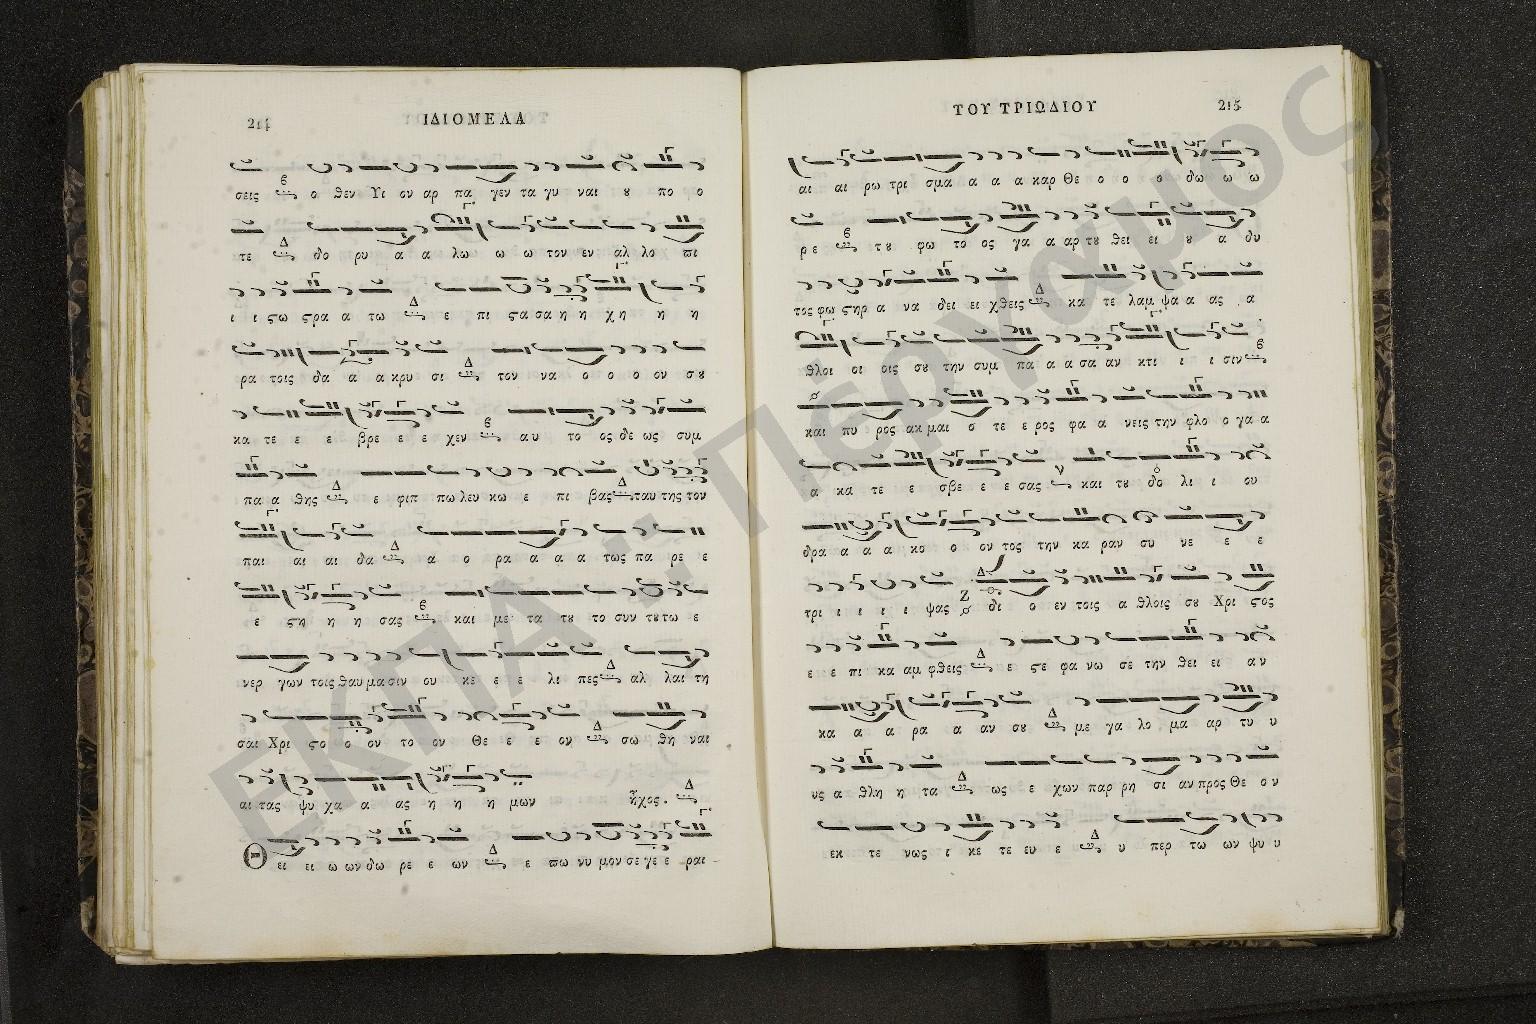 214 ΙΔΙΟΜΕΛΑ
σεις ο θεν Υι ον αρ πα γεν τα γυ ναι ȣ πο ο
τε Δ δο ρυ α α λω ω ω τον εν αλ λο ϖι
ι ι ϛω ϛρα α τω Δ ε πι ϛα σα η η χη η η
ρα τοις δα α α κρυ σι Δ τον να ο ο ο ον σȣ
κα τε ε ε βρε ε ε χεν αυ το ος δε ως συμ
πα α θης Δ ε φιπ πω λευ κω ε πι βας Δ ταυ της τον
παι αι αι δα Δ α ο ρα α α α τως πα ρε ε
ε ϛη η η σας και με τα τȣ το συν τȣ τω ε
νερ γων τοις θαυ μα σιν ου κε ε ε λι πες Δ αλ λαι τη
σαι Χρι ϛο ο ον το ον Θε ε ε ον Δ σω θη ναι
αι τας ψυ χα α ας η η η μων ἦχος . Δ
Θ ει ει ω ων δω ρε ε ων Δ ε ϖω νυ μον σε γε ε ραι
ΤΟΥ ΤΡΙΩΔΙΟΥ 215
αι αι ρω τρι σμα α α α καρ Θε ο ο ο δω ω ω
ρε τȣ φω το ος γα α αρ τȣ θει ει ȣ α δυ
τος φω ϛηρ α να δει ει χθεις Δ κα τε λαμ ψα α ας α
θλοι οι οις σȣ την συμ πα α α σα αν κτι ι ι σιν
και πυ ρος ακ μαι ο τε ε ρος φα α νεις την φλο ο γα α
α κα τε ε σβε ε ε σας και τȣ δο λι ι ου
δρα α α α κο ο ον τος την κα ραν συ νε ε ε
τρι ι ι ι ι ψας Ζ Δ δι ο εν τοις α θλοις σȣ Χρι ϛος
ε ε πι κα αμ φθεις Δ ε ϛε φα νω σε την θει ει αν
κα α α ρα α αν σȣ Δ με γα λο μα αρ τυ υ
υς α θλη η τα Δ ως ε χων παρ ρη σι αν προς Θε ον
εκ τε νως ι κε τε ευ ε Δ υ περ τω ων ψυ υ
ΕΚΠΑ :: Πέργαμος